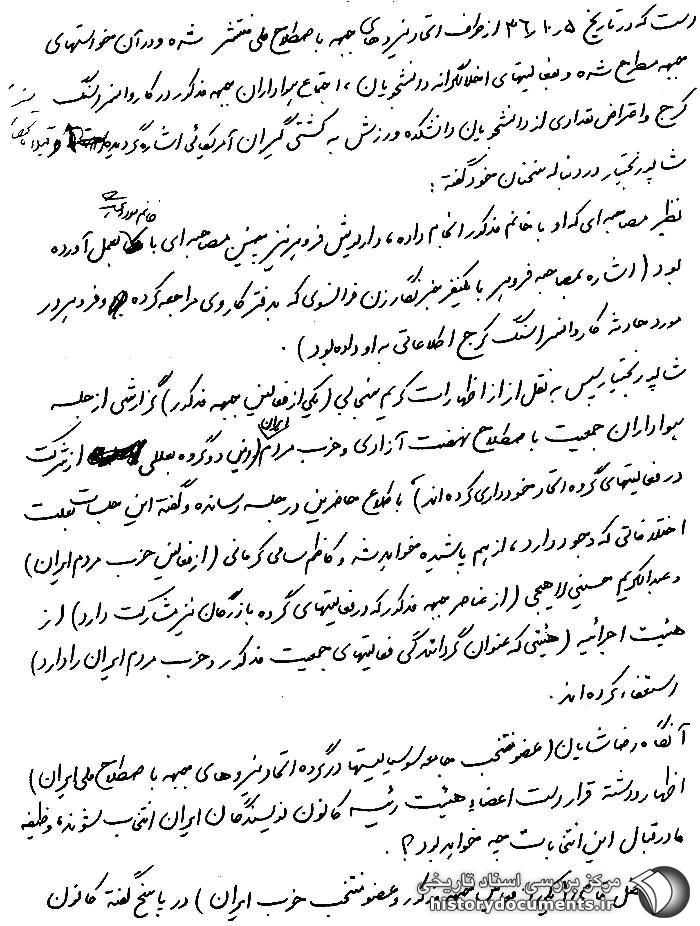 است که در تاریخ ۳۶/۱۰/۵ از طرف اتحاد نیروهای جبهه باصطلاح ملی منتشر شده و در آن خواستهای
جبهه مطرح شده و بفعالیتهای اخلالگرانه دانشجویان، اجتماع هواداران جبهه مذکور در کاروانسراسنگ
کرج و اعتراض تعدادی از دانشجویان دانشکده ورزش به کشتی گیران آمریکائی اشاره گردیده
شاپور بختیار در دنباله سخنان خود گفته :
خانم
نظیر مصاحبه ای که او با خانم مذکور انجام داده، داریوش فروهر نیز چنین مصاحبه ای با بعمل آورده
بود (اشاره بمصاحبه فروهر با یکنفر خبرنگار زن فرانسوی که بدفتر کار وی مراجعه کرده و فروهر در
مورد حادثه کاروانسراسنگ کرج اطلاعاتی به او داده بود) .
شاپور بختیار سپس به نقل از اظهارات کریم سنجابی (یکی از فعالین جبهه مذکور) گزارشی از جلسه
ایران
هواداران جمعیت باصطلاح نهضت آزادی و حزب مردم (این دو گروه بعللی از شرکت
در فعالیتهای گروه اتحاد خودداری کرده اند) باطلاع حاضرین در جلسه رسانده و گفته این جلسات بعلت
اختلافاتی که وجود دارد، از هم پاشیده خواهد شد و کاظم سامی کرمانی (از فعالین حزب مردم ایران)
و عبدالکریم حسینی لاهیجی (از عناصر جبهه مذکور که در فعالیتهای گروه بازرگان نیز شرکت دارد) از
هیئت اجرائیه (هیئتی که عنوان گردانندگی فعالیتهای جمعیت مذکور و حزب مردم ایران را دارد)
استعفاء کرده اند .
آنگاه رضا شایان (عضو منتخب جامعه سوسیالیستها در گروه اتحاد نیروهای جبهه باصطلاح ملی ایران)
اظهار داشته قرار است اعضاء هیئت رئیسه کانون نویسندگان ایران انتخاب بشوند، وظیفه
ما در قبال این انتخابات چه خواهد بود ؟ .
جبهه مذکور و عضو منتخب حزب ایران ) در پاسخ گفته کانون
مرکز بررسی اسناد تاریخی
historydocuments.ir